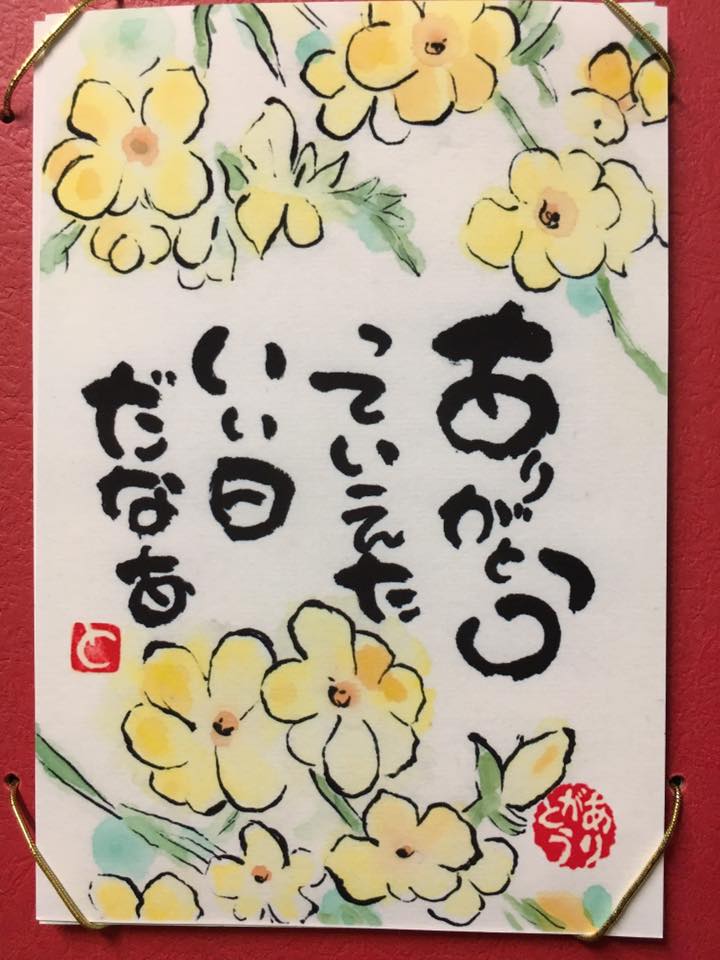 ありがとう
っていえた
いい日
だなあ
と
ありがとう